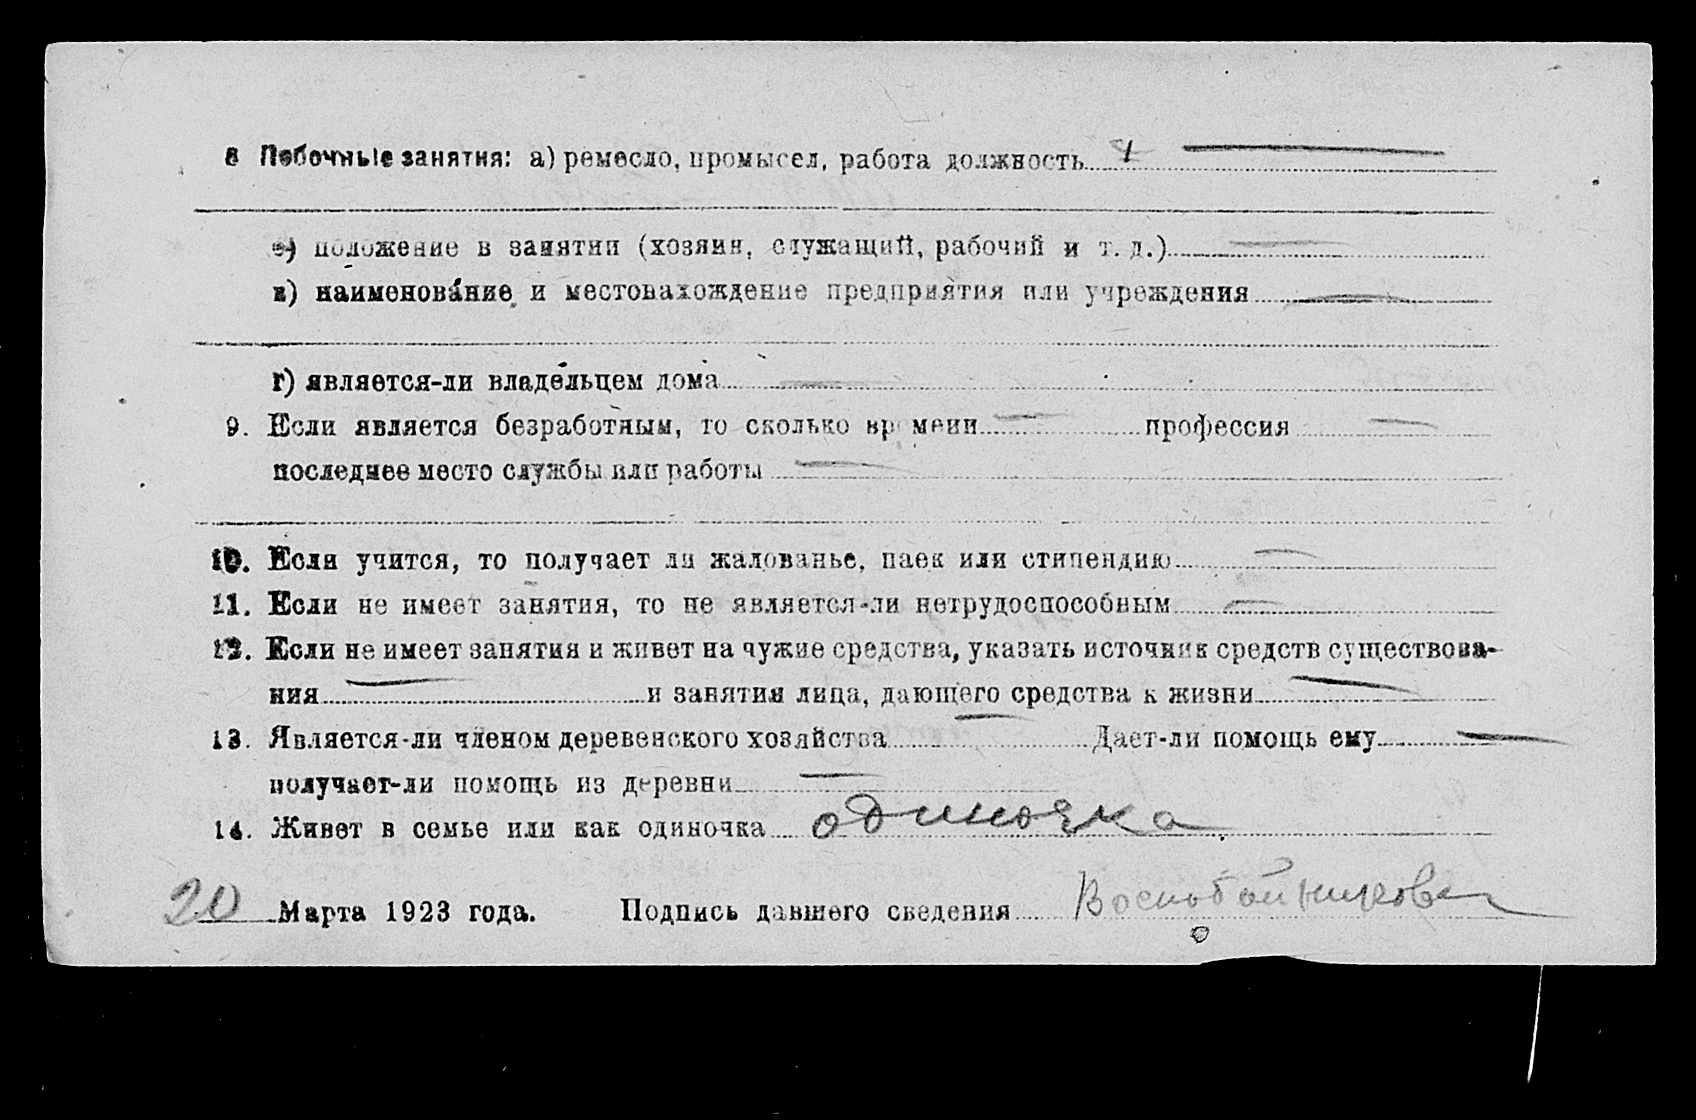 8 Побочные занятия: а) ремесло, промысел, работа должность
б) положение в занятии (хозяин, служащий, рабочий и т. д.)
в) наименование и местонахождение предприятия или учреждения
г) является-ли владельцем дома
9. Если является безработным, то сколько времени профессия
последнее место службы или работы
10. Если учится, то получает ли жалованье, паек или стипендию
11. Если не имеет занятия, то не является-ли нетрудоспособным
12. Если не имеет занятия и живет на чужие средства, указать источник средств существова-
ния и занятия лица, дающего средства к жизни
13. Является-ли членом деревенского хозяйства Дает-ли помощь ему
получает-ли помощь из деревни
14. Живет в семье или как одиночка одиночка
20 Марта 1923 года. Подпись давшего сведения